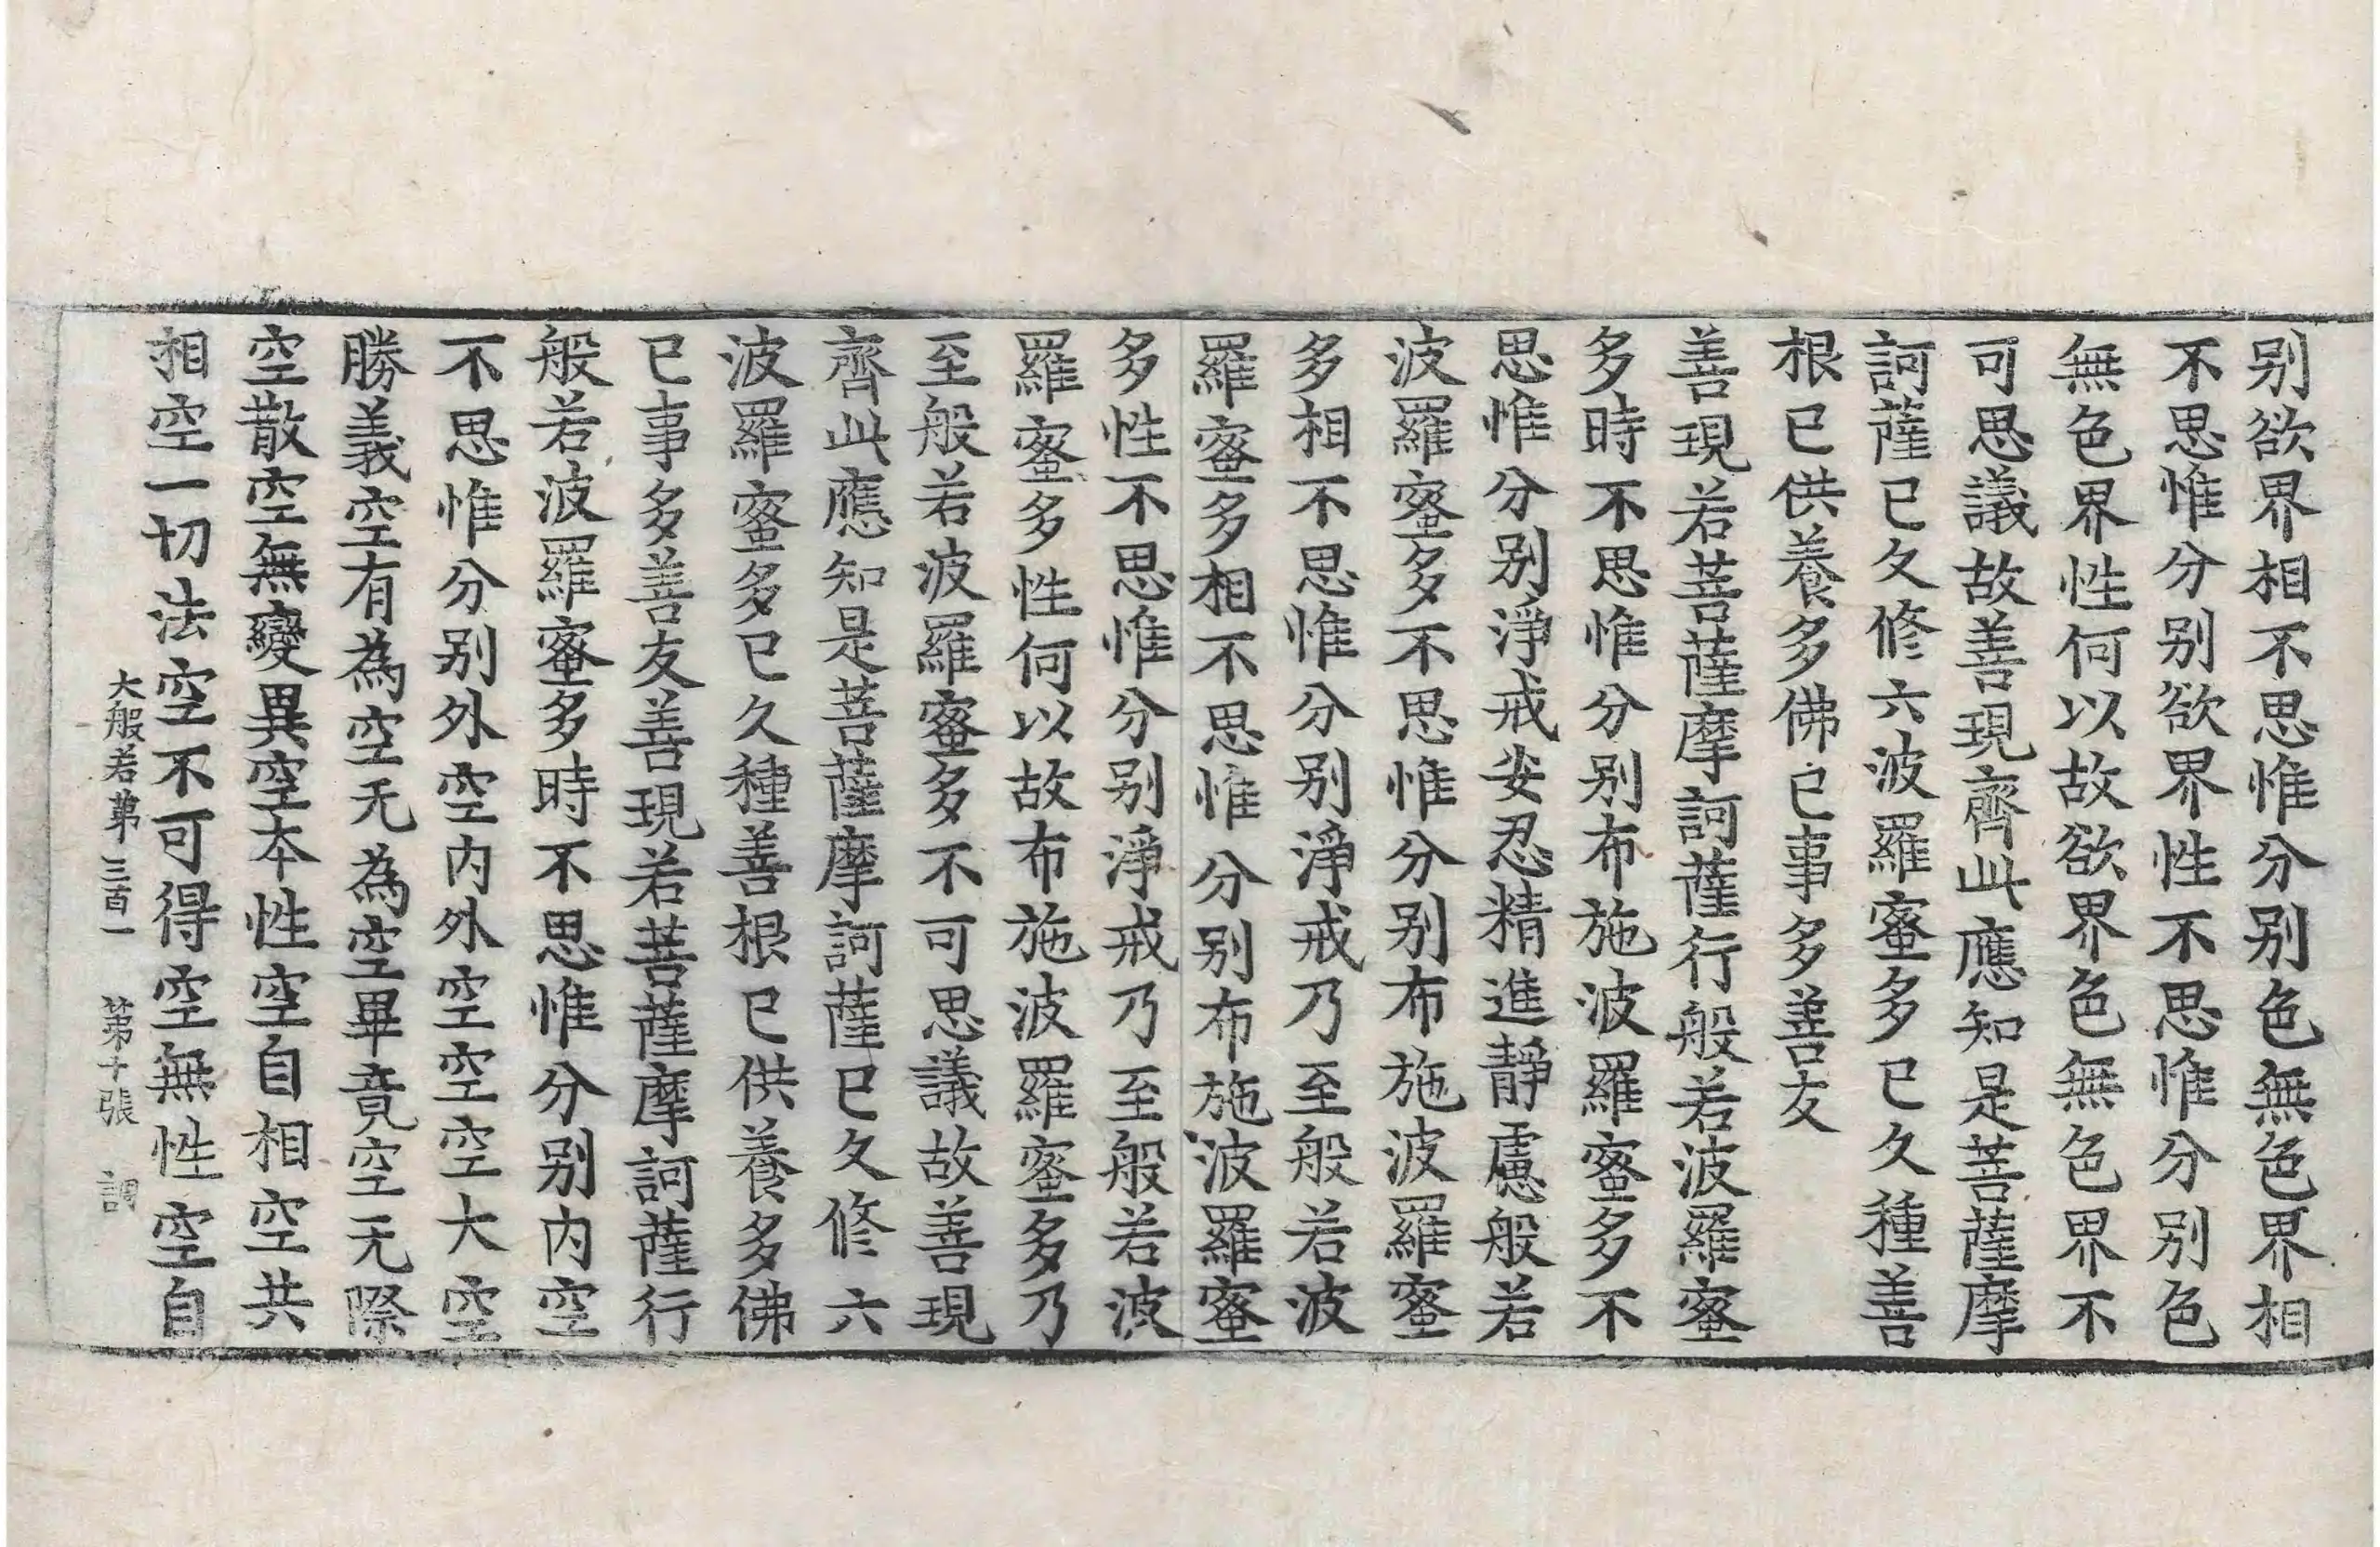 别欲界相不思惟分别色無色界相
不思惟分别欲界性不思惟分别色
無色界性何以故欲界色無色界不
可思議故善現齊此應知是菩薩摩
訶薩已久修六波羅蜜多已久種善
根已供養多佛已事多善友
善現若菩薩摩訶薩行般若波羅蜜
多時不思惟分别布施波羅蜜多不
思惟分别淨戒安忍精進靜慮般若
波羅蜜多不思惟分别布施波羅蜜
多相不思惟分别淨戒乃至般若波
羅蜜多相不思惟分别布施波羅蜜
多性不思惟分别淨戒乃至般若波
羅蜜多性何以故布施波羅蜜多乃
至般若波羅蜜多不可思議故善現
齊此應知是菩薩摩訶薩已久修六
波羅蜜多已久種善根已供養多佛
已事多善友善現若菩薩摩訶薩行
般若波羅蜜多時不思惟分别内空
不思惟分别外空内外空空空大空
勝義空有為空无為空畢竟空无際
空散空無變異空本性空自相空共
相空一切法空不可得空無性空自
大般若苐三百一 苐十張 調